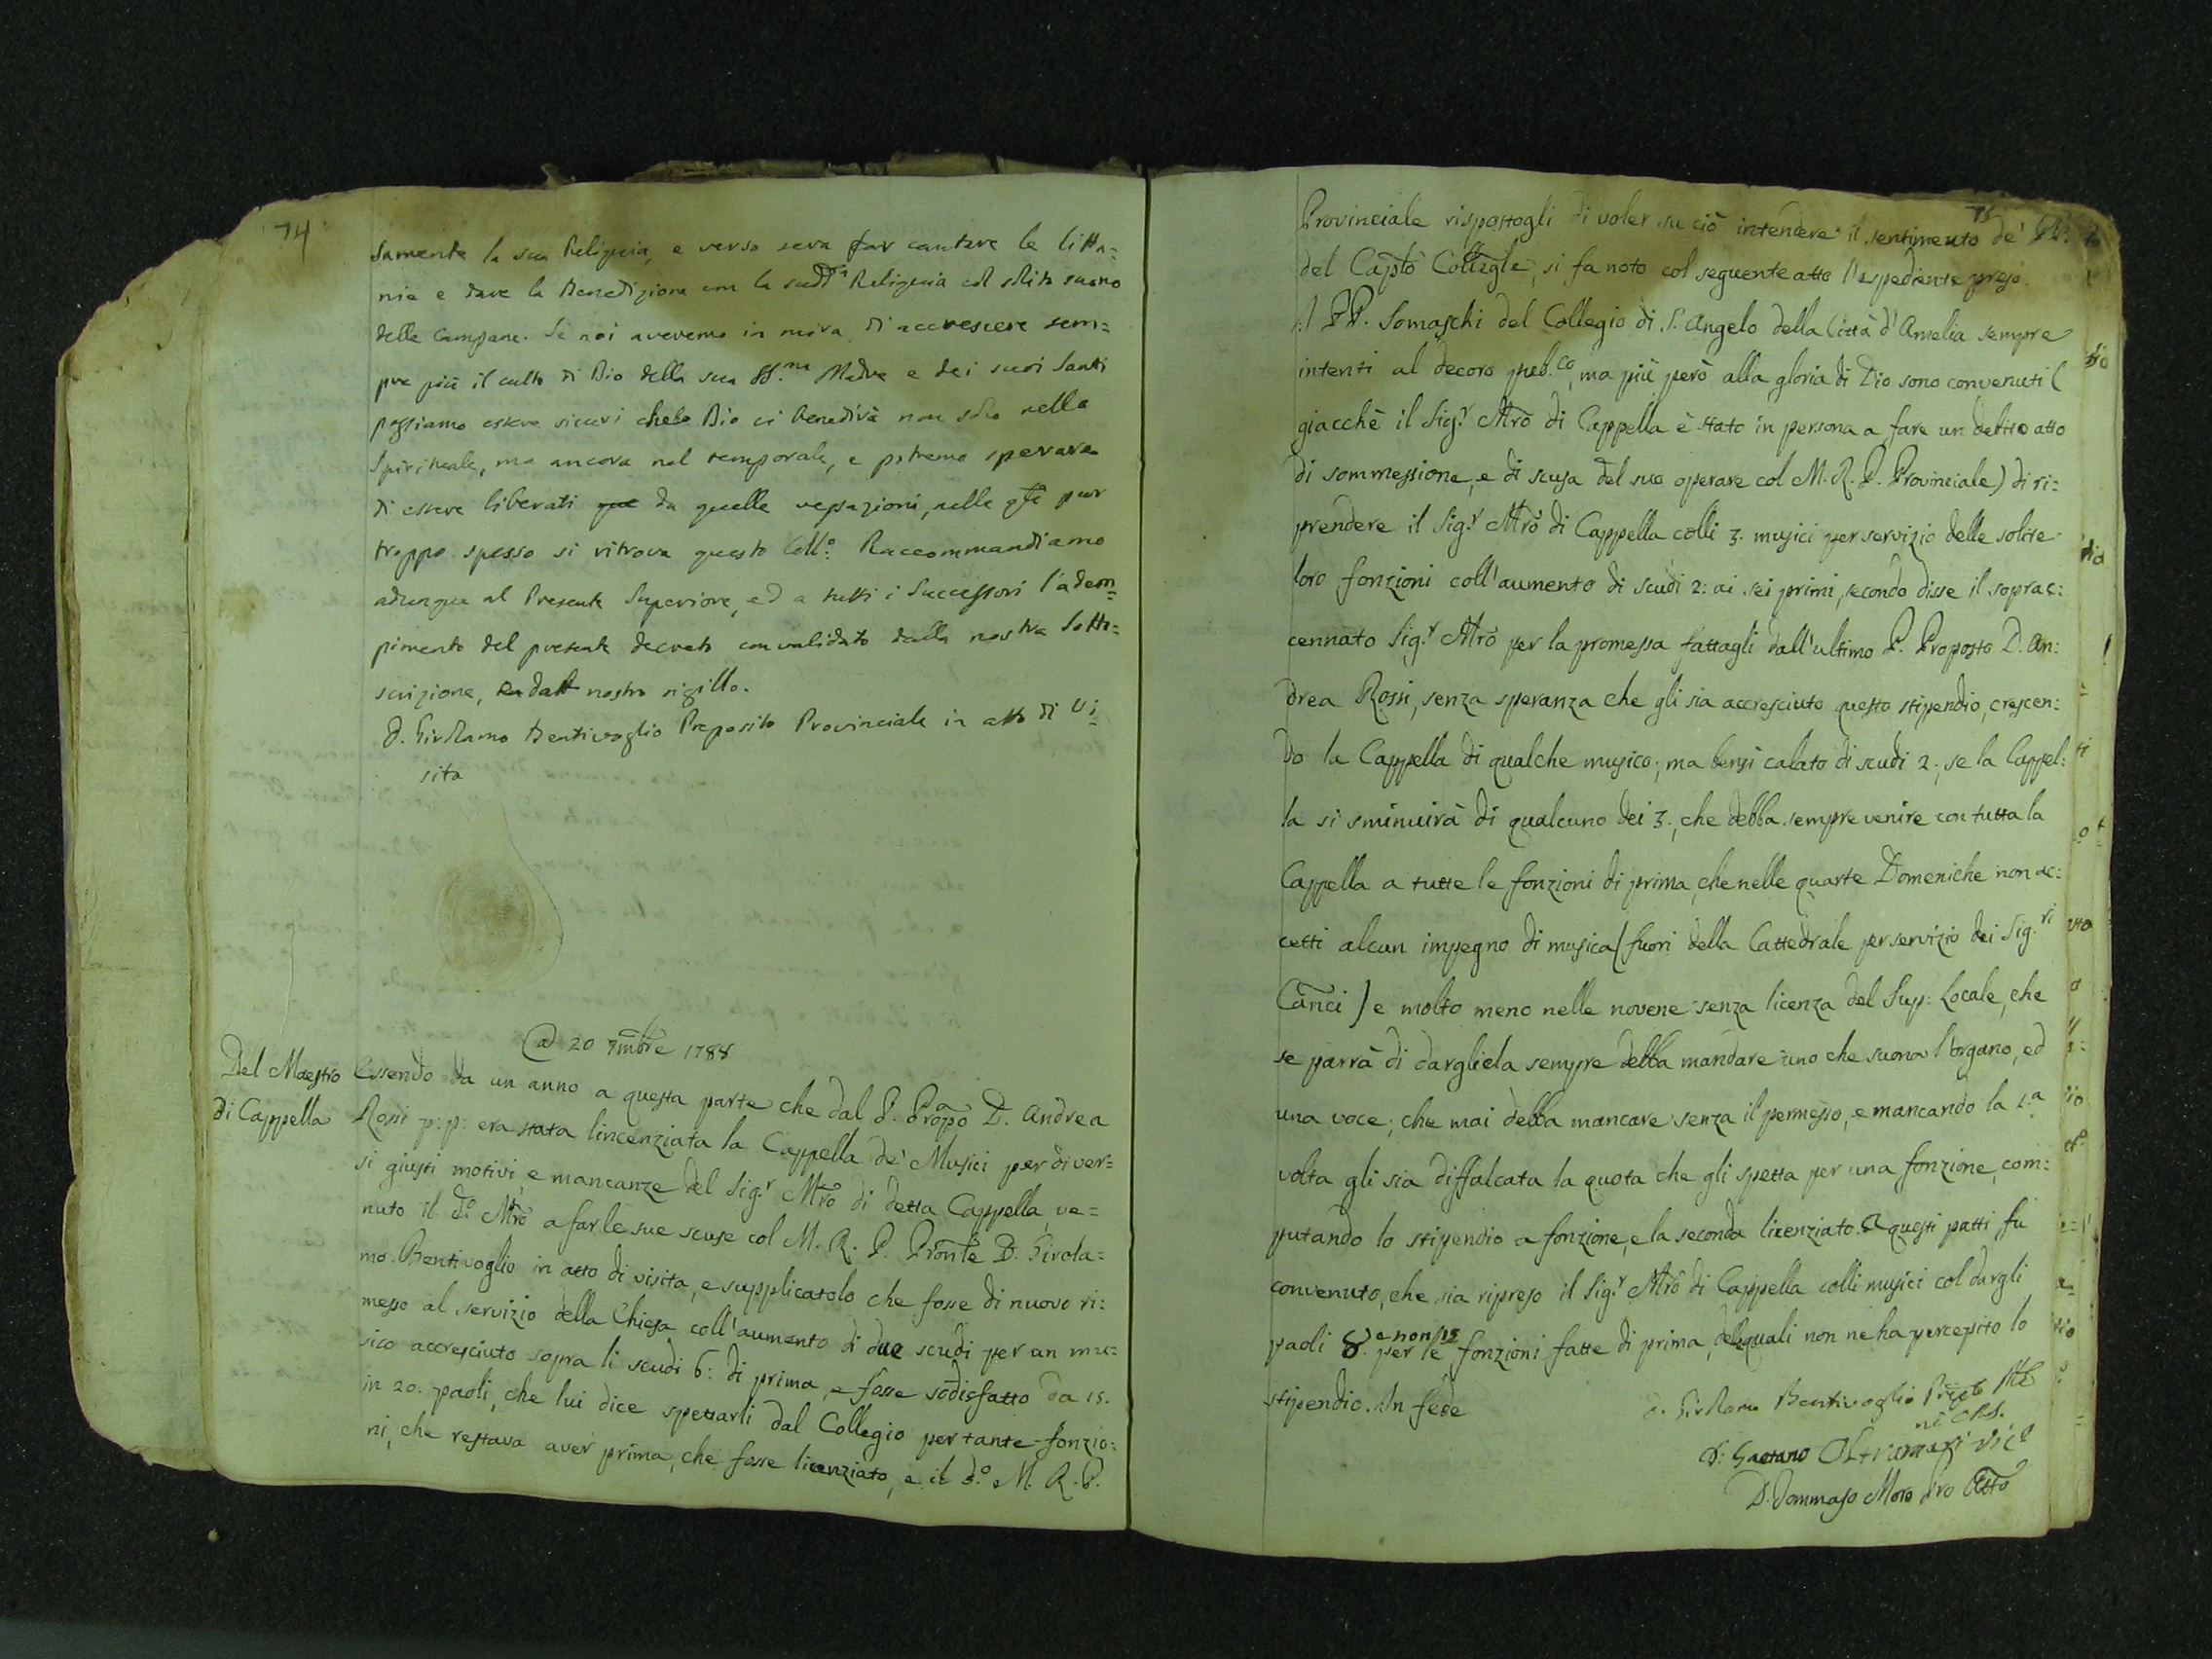 74
samente la sua Reliquia, e verso sera far cantare le litta=
nie e dare la Benedizione con la sudd.a Reliquia col solito suono
delle Campane. Se noi averemo in mira di accrescere sem=
pre più il culto di Dio della sua SS.ma Madre e dei suoi Santi
possiamo essere sicuri che Dio ci benedirà non solo nello
Spirituale, ma ancora nel temporale, e potremo sperare
di essere liberati da quelle vessazioni, nelle qli pur
troppo spesso si ritrova questo Coll.o Raccommandiamo
adunque al Presente Superiore, ed a tutti i Successori l'adem=
pimento del presente decreto convalidato dalla nostra Sotto=
scrizione, e dal nostro sigillo.
D. Girolamo Bentivoglio Preposito Provinciale in atto di Vi=
sita
@ 20 7mbre 1788
Del Maestro
di Cappella
Essendo da un anno a questa parte che dal P. Propo D. Andrea
Rossi p: p: era stata lincenziata la Cappella de' Musici per diver=
si giusti motivi, e mancanze del Sig.r Mro di detta Cappella, ve=
nuto il d.o Mro a far le sue scuse col M. R. P. Pronle D. Girola=
mo Bentivoglio in atto di visita, e supplicatolo che fosse di nuovo ri:
messo al servizio della Chiesa coll'aumento di due scudi per un mu=
sico accresciuto sopra li scudi 6: di prima, e fosse sodisfatto da 15.
in 20. paoli, che lui dice spettarli dal Collegio per tante fonzio:
ni, che restava aver prima, che fosse licenziato, e il d.o M. R. P.
75
Provinciale rispostogli di voler su ciò intendere il sentimento de' PP.
del Caplo Collegle, si fa noto col seguente atto l'espediente preso.
I PP. Somaschi del Collegio di S. Angelo della Città d'Amelia sempre
intenti al decoro pub.co, ma più però alla gloria di Dio sono convenuti (
giacchè il Sig.r Mro di Cappella è stato in persona a fare un debito atto
di sommessione, e di scusa del suo operare col M. R. P. Provinciale) di ri=
prendere il Sig.r Mro di Cappella colli 3. musici per servizio delle solite
loro fonzioni coll'aumento di scudi 2: ai sei primi, secondo disse il soprac:
cennato Sig.r Mro per la promessa fattagli dall'ultimo P. Proposto D. An:
drea Rossi, senza speranza che gli sia accresciuto questo stipendio, crescen:
do la Cappella di qualche musico; ma bensi calato di scudi 2., se la Cappel:
la si sminuirà di qualcuno dei 3., che debba sempre venire con tutta la
Cappella a tutte le fonzioni di prima, che nelle quarte Domeniche non ac:
cetti alcun impegno di musica (fuori della Cattedrale per servizio dei Sig.ri
Canci) e molto meno nelle novene senza licenza del Sup: Locale, che
se parrà di dargliela sempre debba mandare uno che suona l'organo, ed
una voce; che mai debba mancare senza il permesso, e mancando la 1.a
volta gli sia diffalcata la quota che gli spetta per una fonzione, com:
putando lo stipendio a fonzione, e la seconda licenziato. A questi patti fu
convenuto, che sia ripreso il Sig.r Mro di Cappella colli musici col dargli
paoli 8. e non 15 per le fonzioni fatte di prima, delequali non ne ha percepito lo
stipendio. In fede
D. Girolamo Bentivoglio
D. Gaetano Oltremari
D. Tommaso Moro Atto